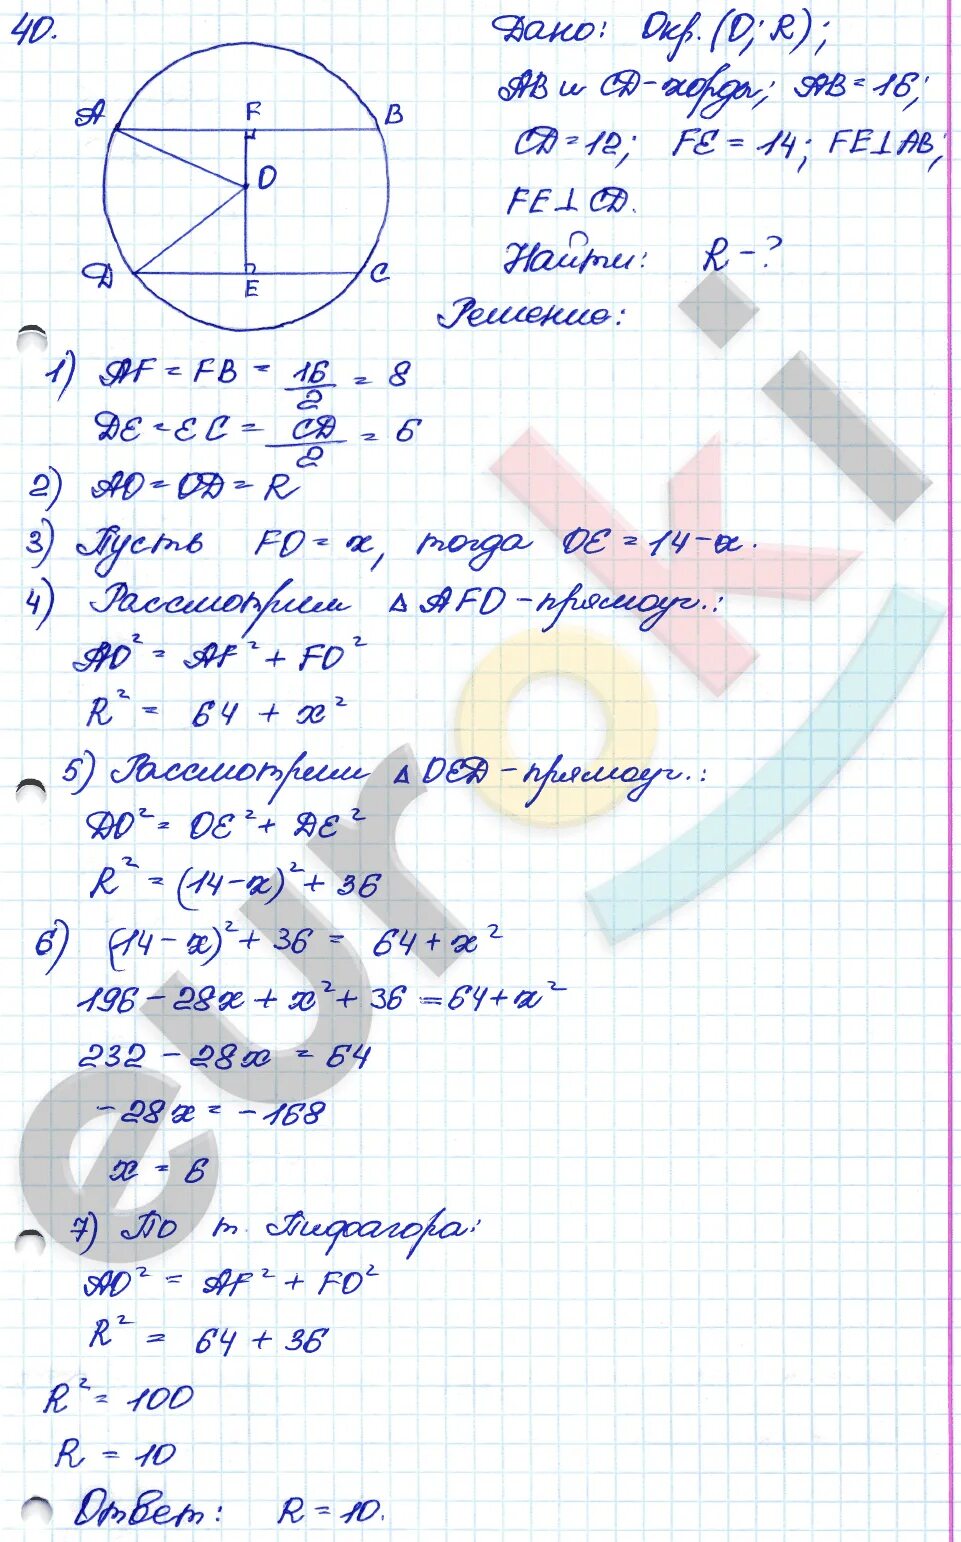 40.
Дано: Окр. (O; R);
AB и CD-хорды; AB = 16;
CD = 12; FE = 14; FE⊥AB;
FE⊥CD.
Найти: R - ?
Решение:
A F B
O
D E C
1) AF = FB = 16/2 = 8
DE = EC = CD/2 = 6
2) AO = OD = R
3) Пусть FO = x, тогда OE = 14-x.
4) Рассмотрим △AFO-прямоуг.:
AO² = AF² + FO²
R² = 64 + x²
5) Рассмотрим △OED-прямоуг.:
DO² = OE² + DE²
R² = (14-x)² + 36
6) (14-x)² + 36 = 64 + x²
196 - 28x + x² + 36 = 64 + x²
232 - 28x = 64
-28x = -168
x = 6
7) По т. Пифагора:
AO² = AF² + FO²
R² = 64 + 36
R² = 100
R = 10
Ответ: R = 10.
euroki